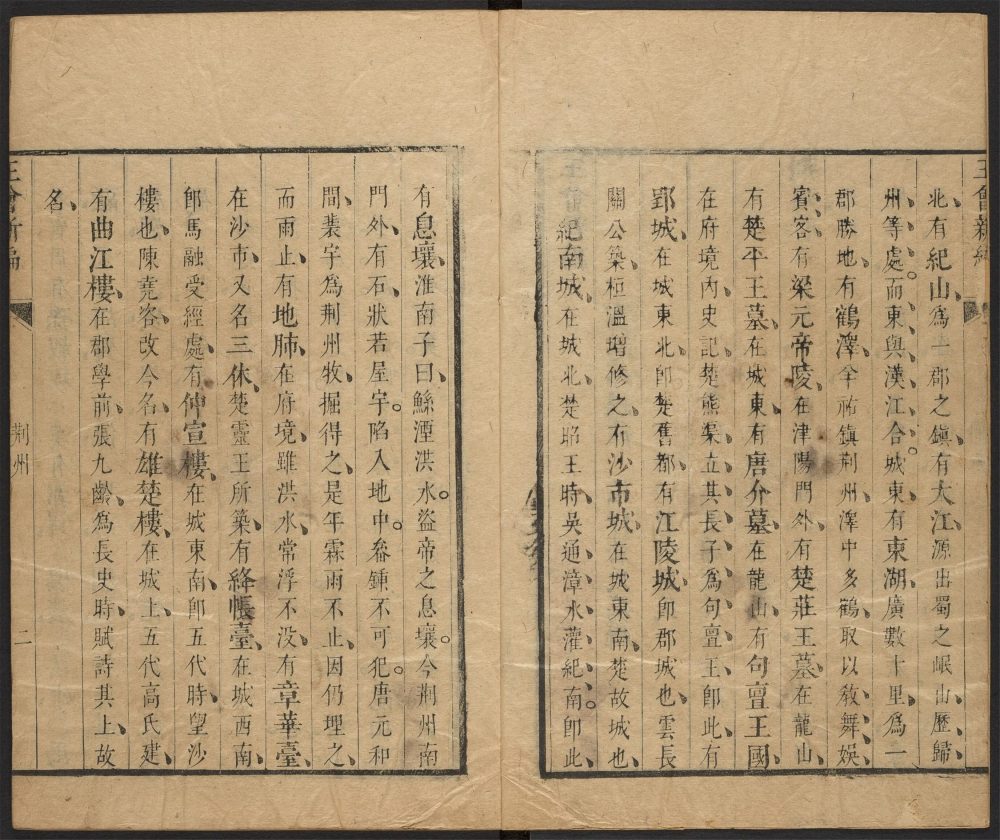 北有紀山爲一郡之鎭有大江源出蜀之岷山歷歸
州等處。而東與漢江合。城東有東湖廣數十里爲一
郡勝地有鶴澤羊祜鎭荆州澤中多鶴取以敎舞娛
賓客有梁元帝陵在津陽門外有楚莊王墓在龍山
有楚平王墓在城東有唐介墓在龍山有句亶王國
在府境內史記楚熊渠立其長子爲句亶王卽此有
郢城在城東北卽楚舊都有江陵城卽郡城也雲長
關公築桓溫增修之有沙市城在城東南楚故城也
紀南城在城北楚昭王時吳通漳水灌紀南。卽此
有息壤淮南子曰鯀湮洪水。盜帝之息壤。今荆州南
門外有石狀若屋宇。陷入地中。畚鍤不可犯。唐元和
間裴宇爲荆州牧掘得之是年霖雨不止因仍埋之
而雨止有地肺在府境雖洪水常浮不没有章華臺
在沙市又名三休楚靈王所築有絳帳臺在城西南
卽馬融受經處有仲宣樓在城東南卽五代時望沙
樓也陳堯咨改今名有雄楚樓在城上五代高氏建
有曲江樓在郡學前張九齡爲長史時賦詩其上故
名
荆州
二